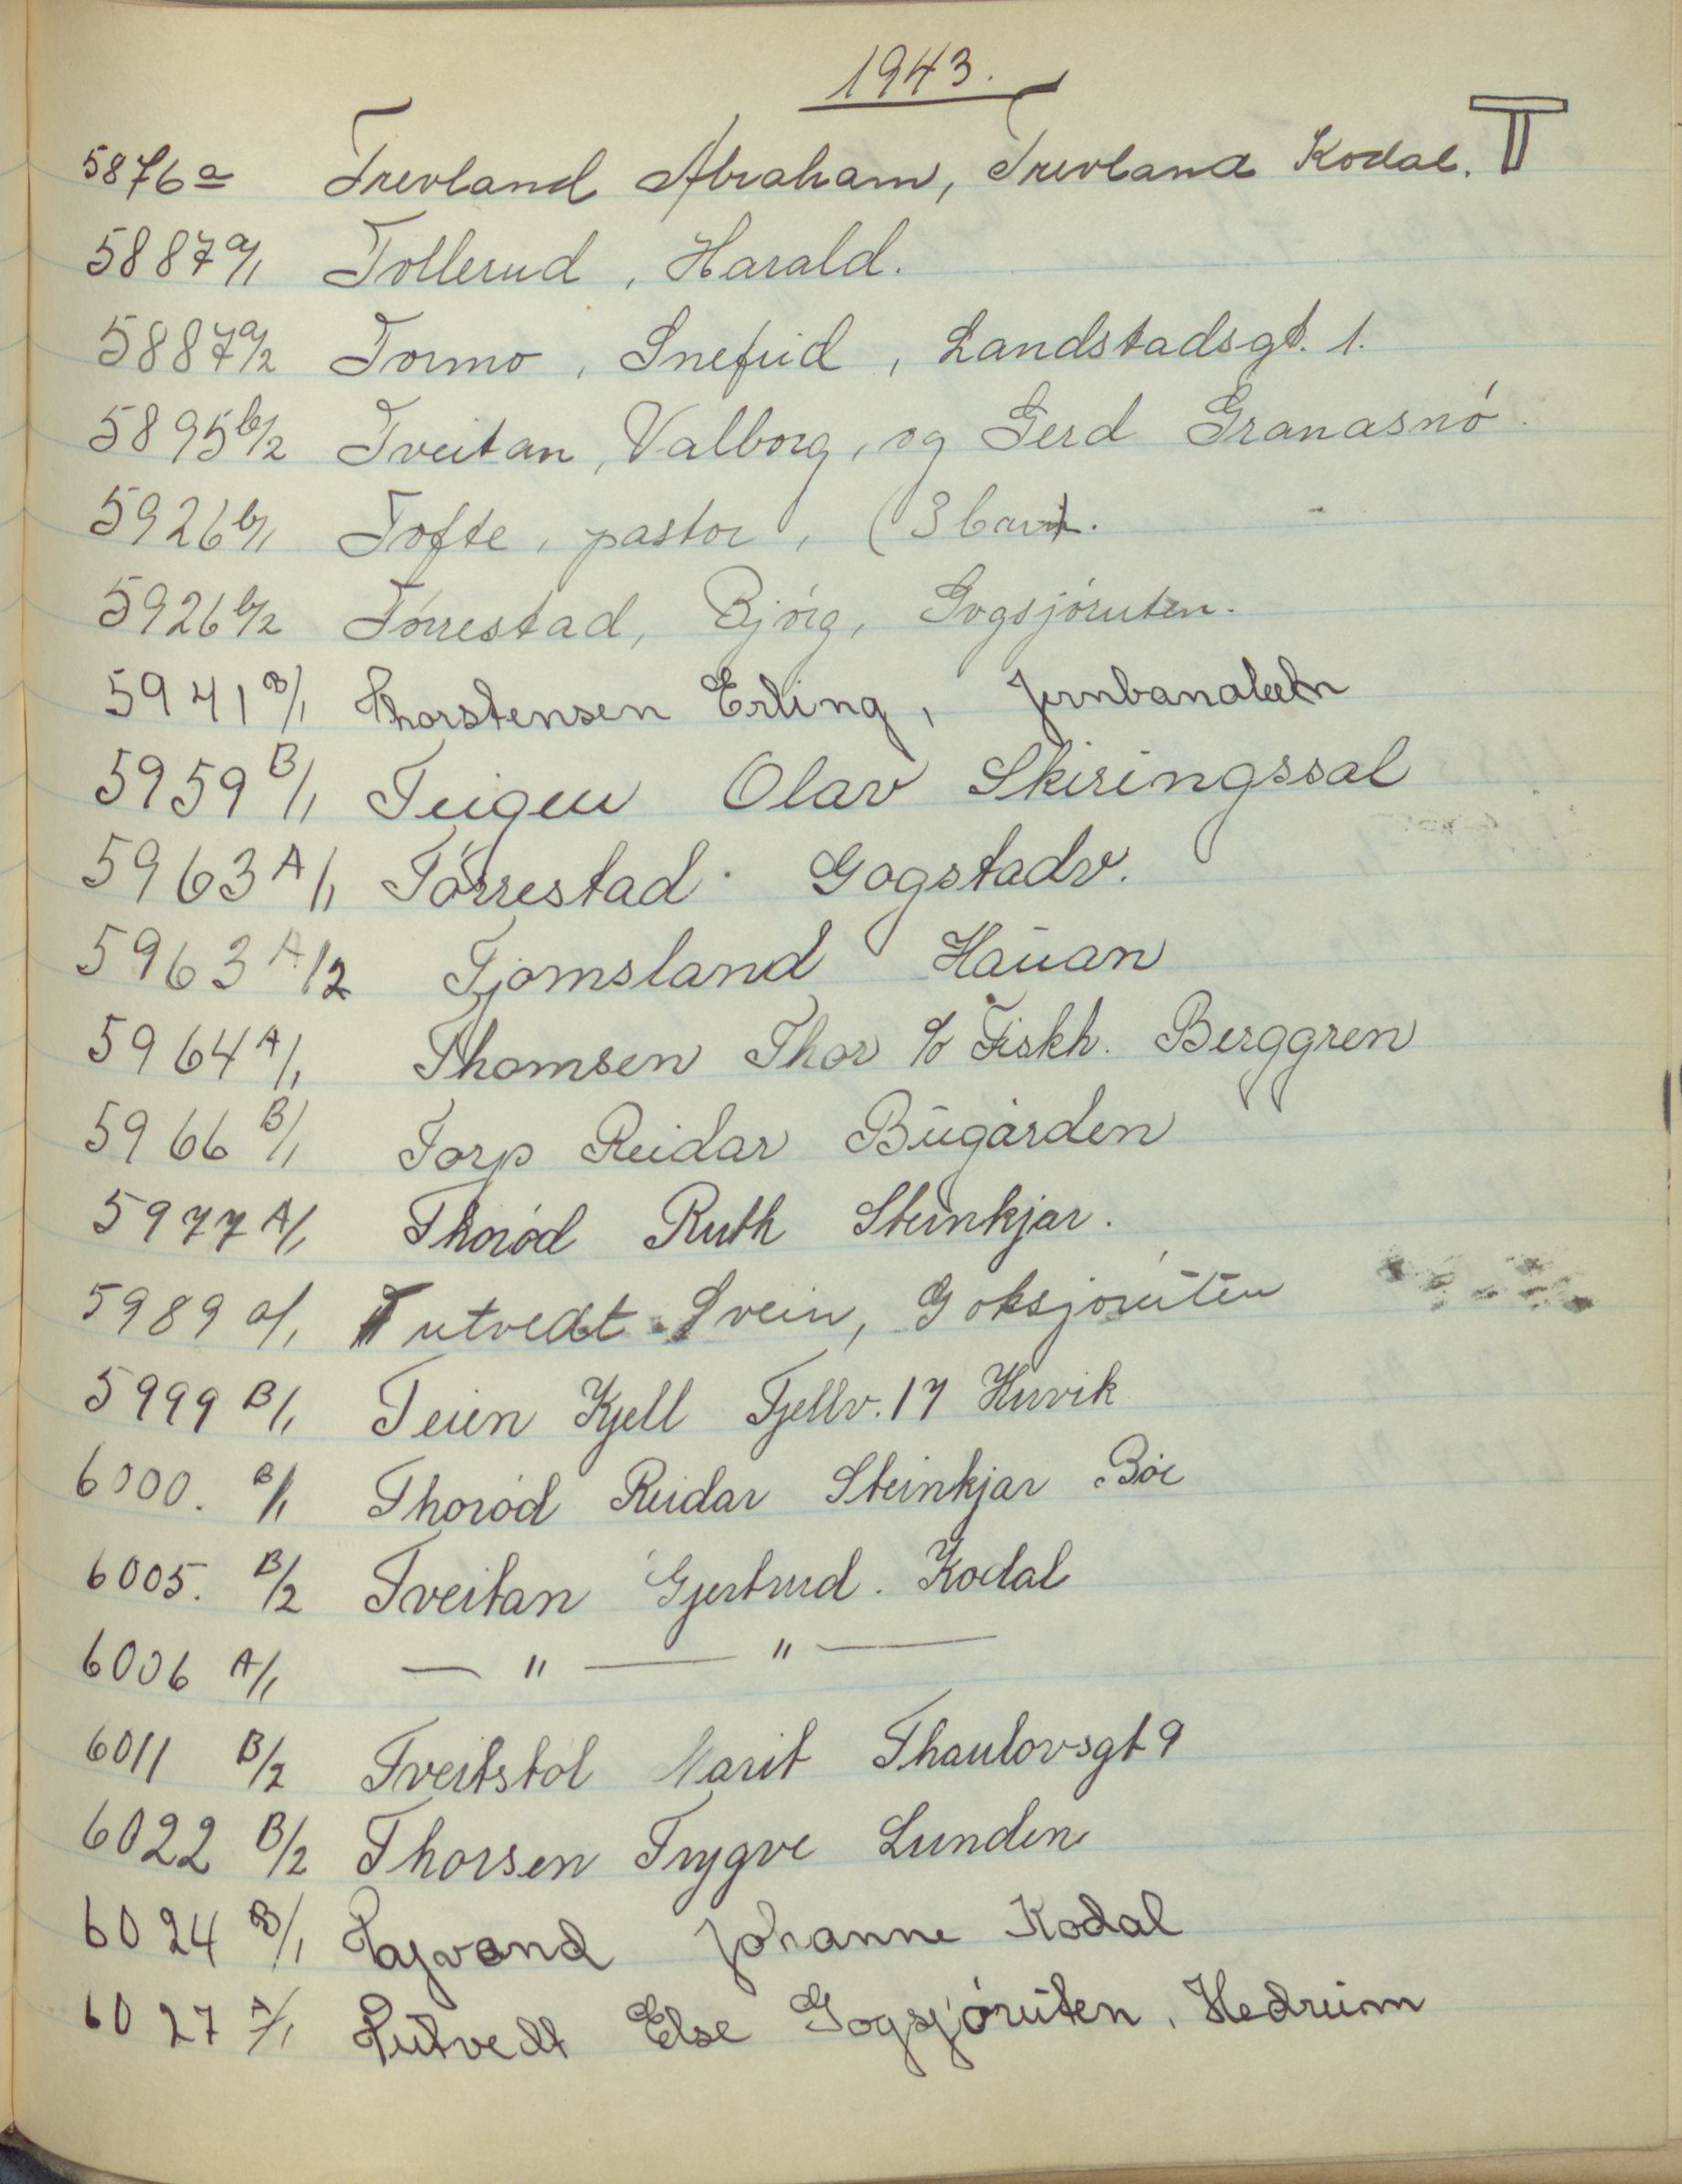 1943.
T
5876a Trevland Abraham, Trevland Kodal.
5887a/1 Tollerud, Harald.
5887a/2 Tormo, Snefrid, Landstadsgt. 1.
5895b/2 Tveitan, Valborg, og Gerd Granasnó.
5926b/1 Tofte, pastor, (3 barn.
5926b/2 Tórrestad, Bjórg, Gogsjóruten.
5941 B/1 Thorstensen Erling,
5959 B/1 Teigen Olav Skiringssal
5963 A/1 Tórrestad Gogstadv.
5963 A/2 Tjomsland Haŭan
5964 A/1 Thomsen Thor c/o Fiskh. Berggren
5966 B/1 Torp Reidar Būgården
5977 A/1 Thoród Ruth Steinkjar.
5989 a/1 Tutvedt Svein, Goksjorūten
5999 B/1 Teien Kjell Fjellv. 17 Huvik
6000. B/1 Thoród Reidar Steinkjar Bóe
6005. B/2 Tveitan Gjertrud. Kodal
6006 A/1 — " — " —
6011 B/2 Tveitstol Marit Thaulovsgt 9
6022 B/2 Thorsen Trygve Lunden
6024 B/1 Tajvand Johanne Kodal
6027 A/1 Tūtvedt Else Gogsjórūten, Hedrūm